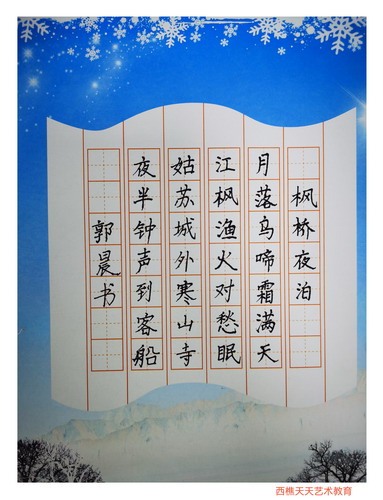 枫桥夜泊
月落乌啼霜满天
江枫渔火对愁眠
姑苏城外寒山寺
夜半钟声到客船
郭晨书
西樵天天艺术教育